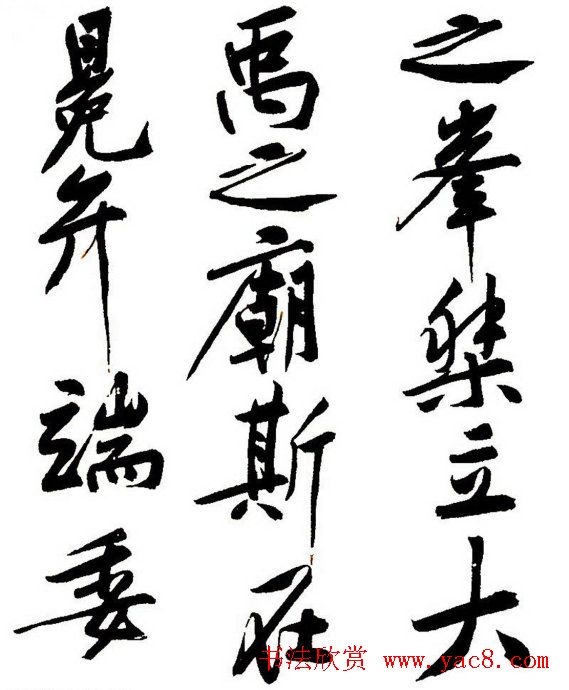 之峯桀立大
禹之廟斯在
冕弁端委
书法欣赏 www.yac8.com